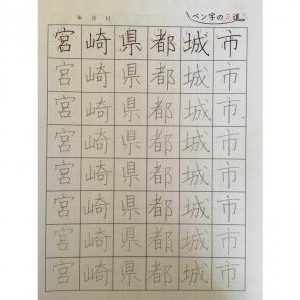 年 月 日 ペン字の花道
宮崎県都城市
宮崎県都城市
宮崎県都城市
宮崎県都城市
宮崎県都城市
宮崎県都城市
宮崎県都城市
宮崎県都城市